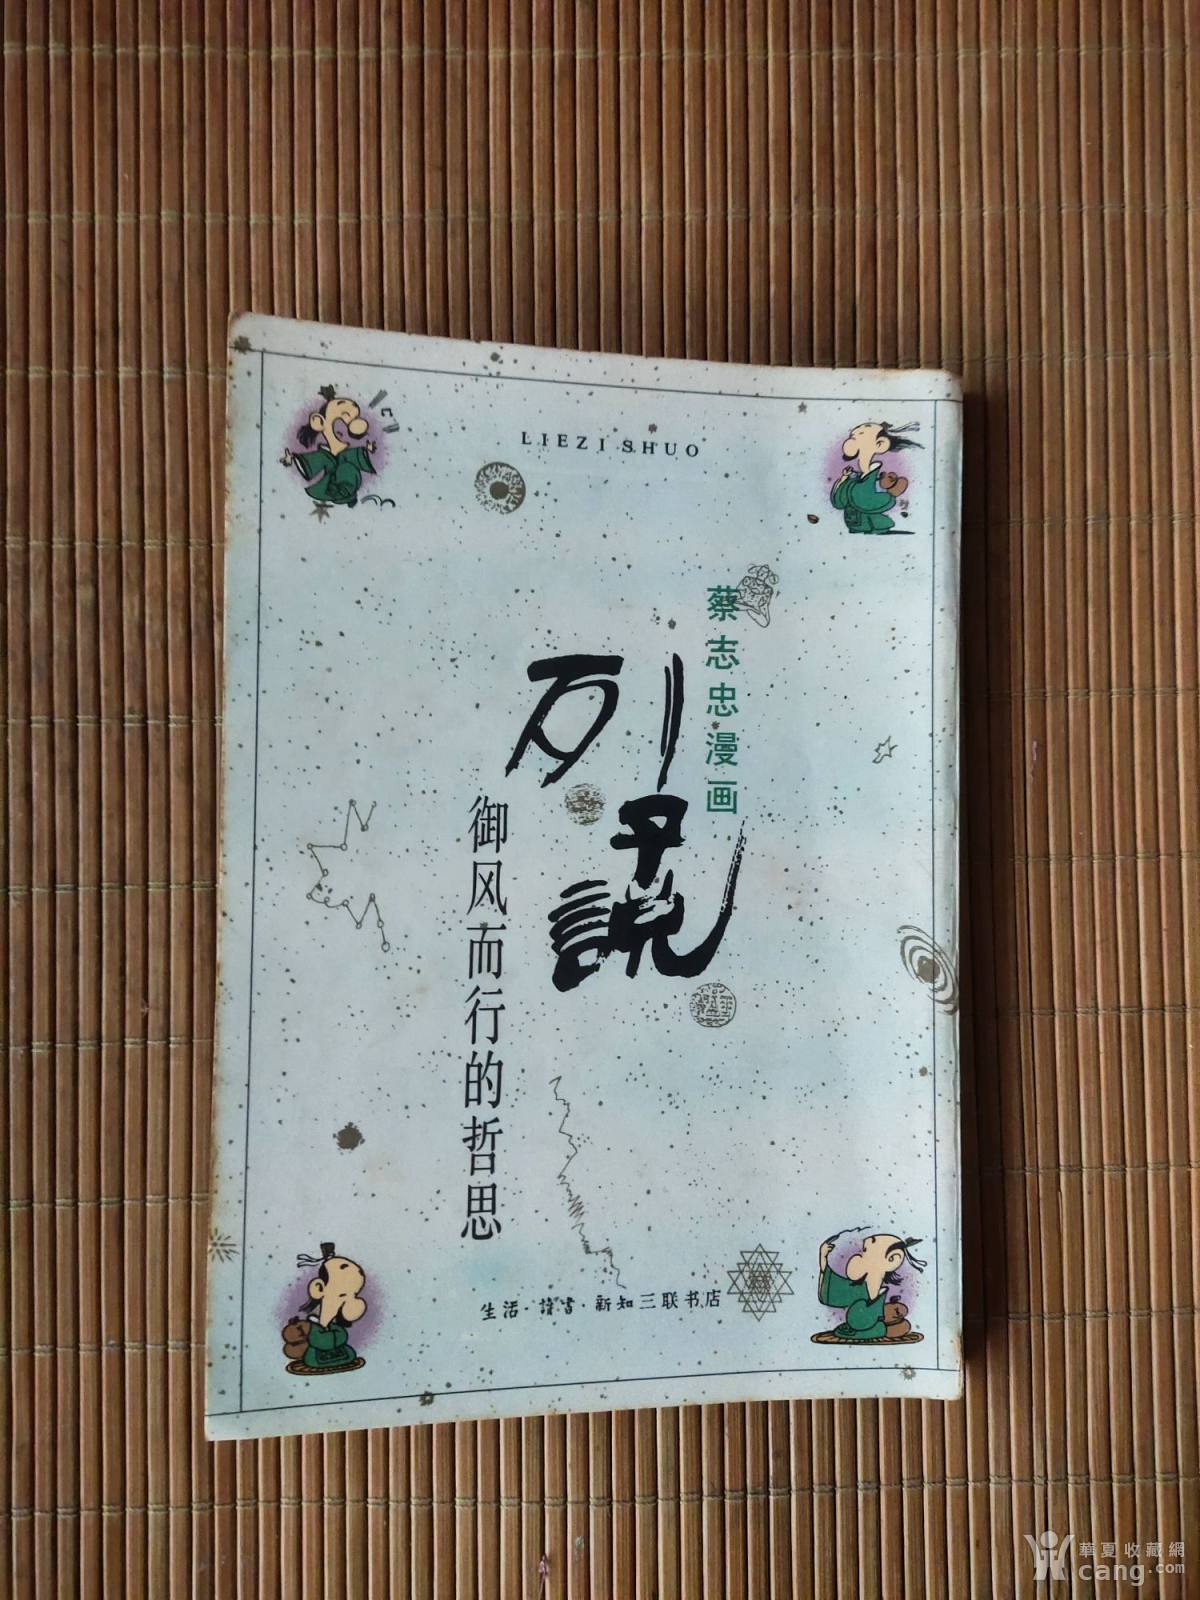 LIEZI SHUO
蔡志忠漫画
列子説
御风而行的哲思
生活·讀書·新知三联书店
華夏收藏網
cang.com